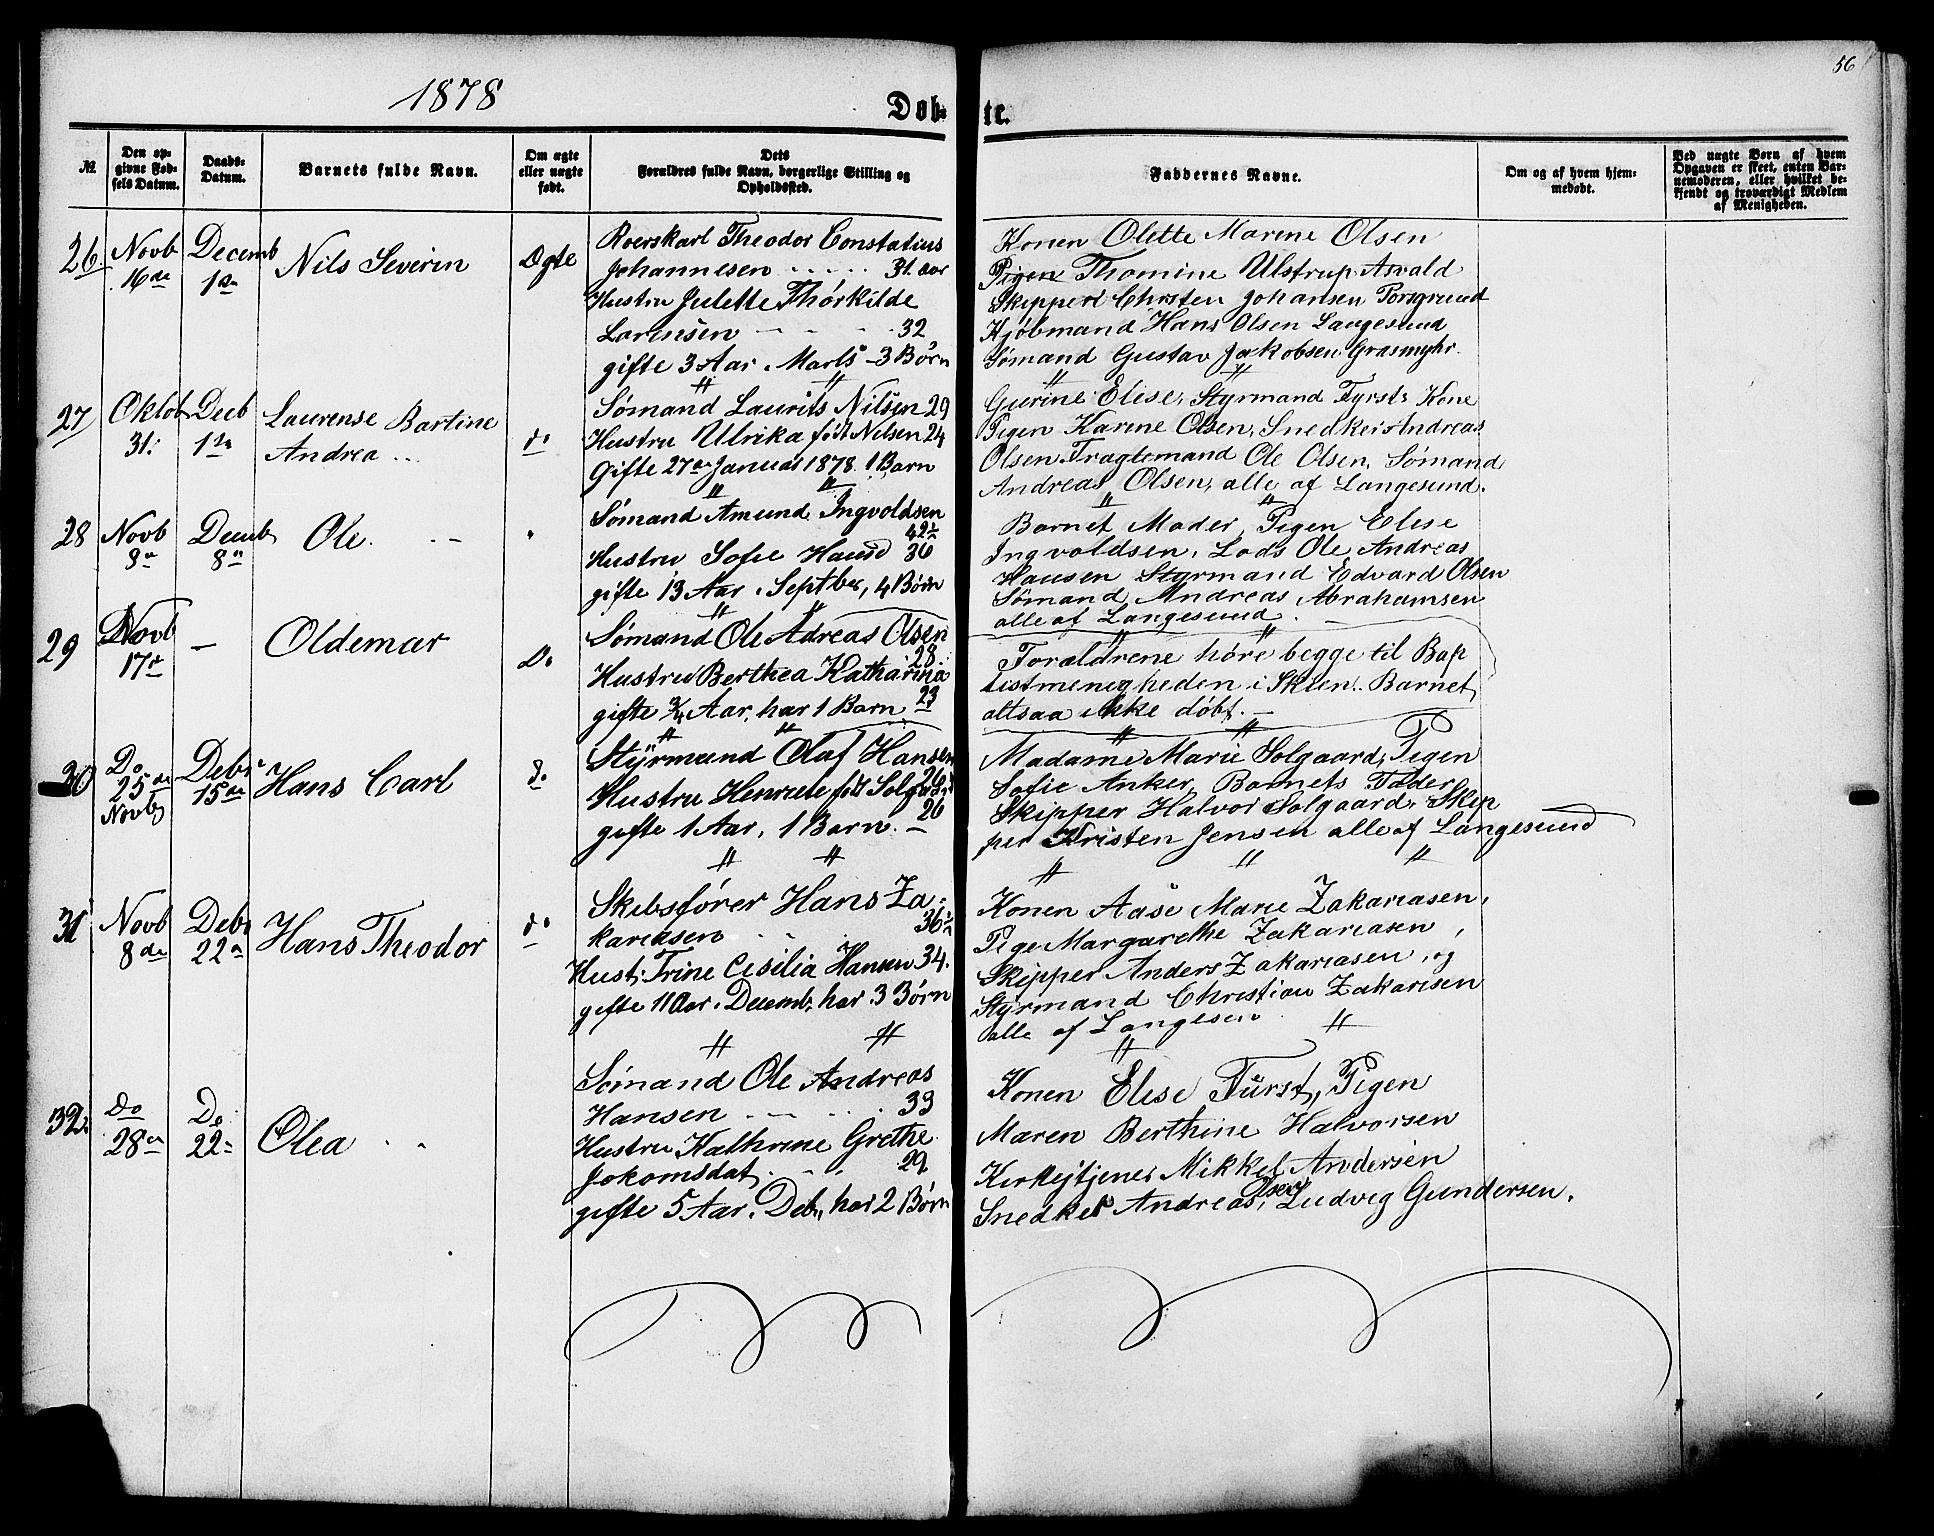 56
1878
Døb- te.
№
Den op-
givne Fød-
sels Datum.
Daabs-
Datum.
Barnets fulde Navn.
Om ægte
eller uægte
født.
Dets
Forældres fulde Navn, borgerlige Stilling og
Opholdssted.
Faddernes Navne.
Om og af hvem hjem-
medøbt.
Ved uægte Børn af hvem
Opgaven er skeet, enten Bar-
nemoderen, eller hvilket be-
kjendt og troværdigt Medlem
af Menigheden.
26.
Novb
16de
Decemb
1ste
Nils Severin
Ægte
Roerskarl Theodor Constatius
Johannesen 31. aar
Hustru Julette Thorkilde
Larensen 32
gifte 3 Aar. Marts 3 Børn
Konen Olette Marene Olsen
Pigen Thomine Ulstrup Asvald
Skipperi Christen Johansen Porsgrund
Kjøbmand Hans Olsen Langesund
Sømand Gustav Jakobsen Grasmyhr.
27
Oktob
31.
Decb
1ste
Laurense Bartine
Andrea
do
Sømand Laurits Nilsen 29
Hustru Ulrika født Nelsen 24
Gifte 27de Januar 1878. 1 Barn
Gurine Elise, Styrmand Fyrsts Kone
Pigen Karene Olsen, Snedker Andreas
Olsen. Fragtemand Ole Olsen. Sømand
Andreas Olsen, alle af Langesund.
28
Novb
8de
Decemb
8de
Ole.
Sømand Amund Ingvoldsen
42
Hustru Sofie Hansd 36
gifte 13 Aar. Septber, 4 Børn
Barnet Moder, Pigen Elise
Ingvoldsen, Lods Ole Andreas
Hansen Styrmand Edvard Olsen
Sømand Andreas Abrahamsen
alle af Langesund.
29
Novb
17de
—
Oldemar
Do
Sømand Ole Adreas Olsen
28.
Hustru Berthea Katharina
gifte 3/4 Aar, har 1 Barn 23
Forældrene høre begge til Bap
tistmenigheden i Skien. Barnet
altsaa ikke døbt. —
30
Do
25de
Novb
Debr
15de
Hans Carl
do
Styrmand Olaf Hansen
26
Hustru Henriete født Solgaard
gifte 1 Aar, 1 Barn. — 26
Madame Marie Solgaard, Pigen
Sofie Anker, Barnets Fader
Skipper Halvor Solgaard. Skip
per Kristen Jensen alle af Langesund
31
Novb
8de
Debr
22de
Hans Theodor
do
Skibsfører Hans Za-
kariasen 36
Hust. Trine Cesilia Hansen 34.
gifte 11 Aar. Decemb, har 3 Børn
Konen Aase Marie Zakariasen,
Pige Margarethe Zakariasen,
Skipper Anders Zakariasen, og
Styrmand Christian Zakarisen
alle af Langesun
32.
Do
28de
Do
22de
Olea
Sømand Ole Andreas
Hansen 33
Hustru Kathrine Grethe
Jokomsdat. 29
gifte 5 Aar. Debr, har 2 Børn
Konen Elise Fürst, Pigen
Maren Berthine Halvorsen
Kirkejtjener Mikkel Andersen
Snedker Andreas Olsen, Ludvig Gundersen.